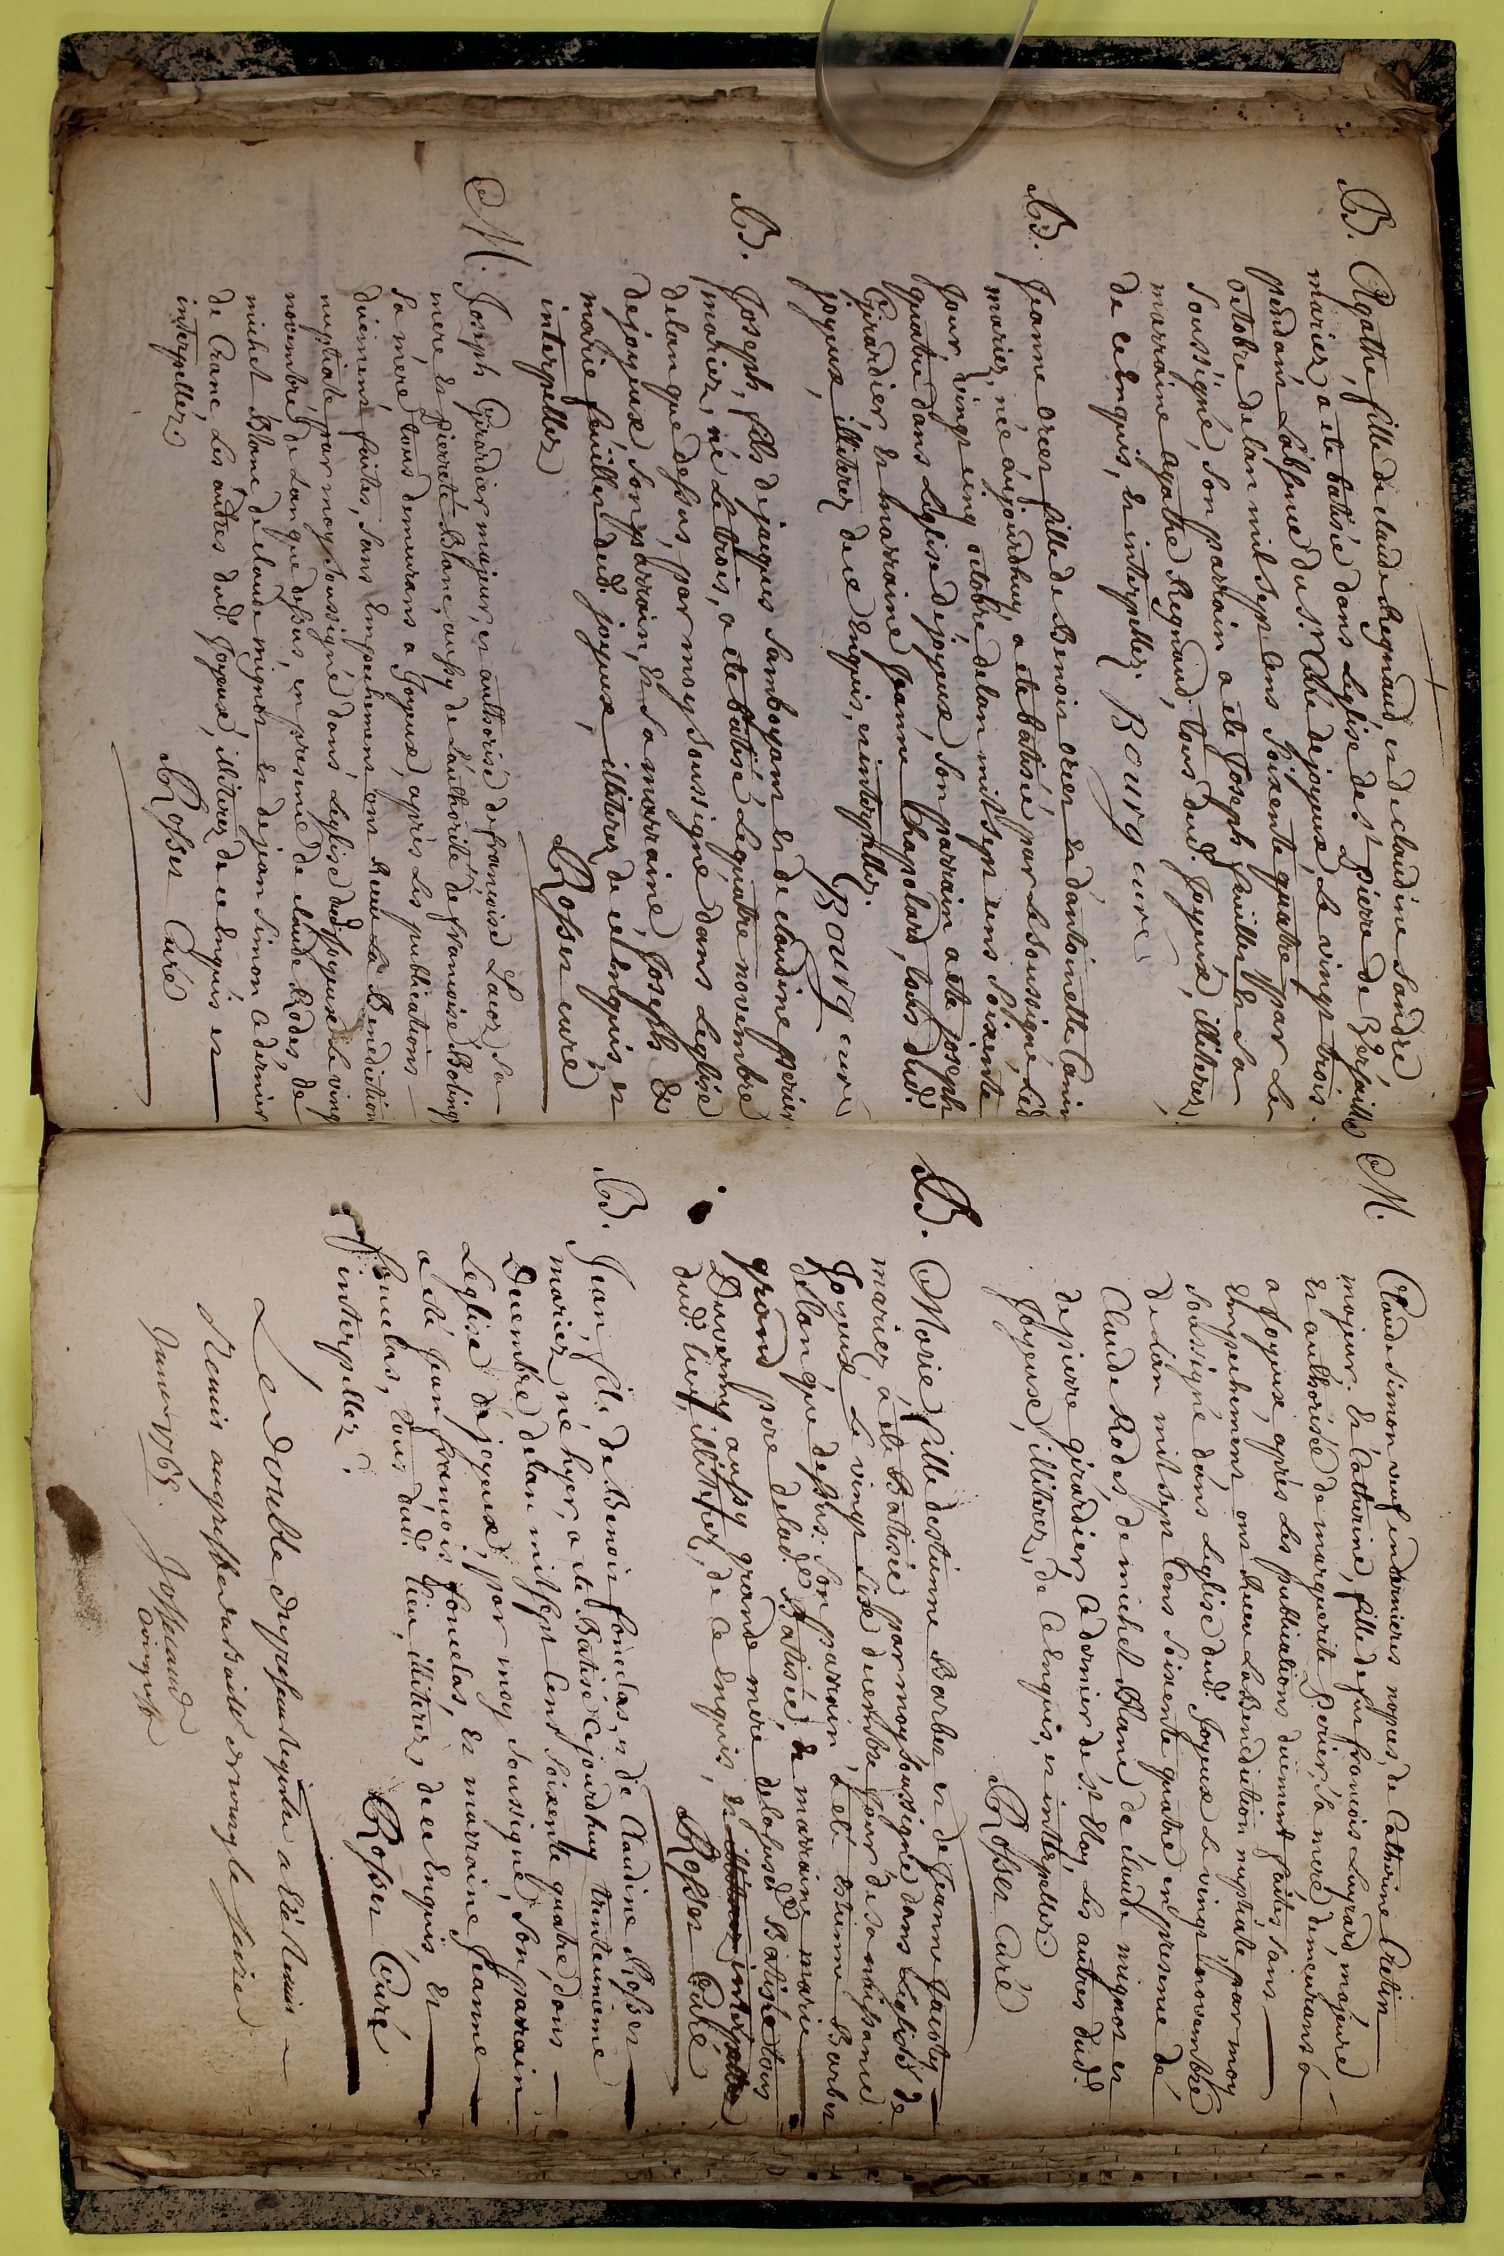 B. Agathe, fille de claude Regnaud, et de claudine Sandré
mariez a ete batisée dans Leglise de st pierre de Versailles
pendant L'absence du sr. Curé de joyeux, Le vingt trois
octobre de lan mil sept cens Soixente quatre, par Le
Soussigné, Son parrain a ete Joseph fuillet et Sa
marraine agathe Regnaud, tous dud. Joyeux, illiterez,
de ce enquis, et interpellez. Bourg curé
B. Jeanne orcet fille de Benoit orcet et d'antoinette
mariez, née aujourdhuy a ete batisée par le soussigné, led
Jour vingt cinq octobre de lan mil sept cens Soixente
quatre dans Leglise de joyeux, Son parrain a ete joseph
Girardier et marraine Jeanne Chapolard, tous dud.
joyeux, illiterez de ce enquis, et interpellez.
Bourg curé
B. Joseph, fils de jacques Samboyant et de claudine perier
mariez, né Le trois, a ete batisé Le quatre novembre
de lan que dessus, par moy soussigné dans Leglise
de joyeux, Son parrain, et Sa marraine, Joseph et
marie fuillet dud. joyeux, illiterez de ce enquis, et
interpellez
Rosset curé
M. Joseph Girardier majeur, et authorisé de francoise Lacoz Sa
mere, et pierrete Blanc, aussy de L'authorité de francoise Boling
Sa mere tous demeurans a Joyeux, apres Les publications
duement faites, sans Empechement ont Receu La Benediction
nuptiale par moy soussigné dans Leglise dud. Joyeux Le vingt
novembre, de Lan que dessus, en presence de claude Rodes, de
michel Blanc de claude mignot et de jean Simon a dernier
de Crane Les autres dud. Joyeux, illiterez de ce Enquis et
interpellez.
Rosset Curé
M. Claude Simon veuf en dernieres nopces, de Catherine Cretin
majeur, et Catherine, fille de fut francois Luyrard, majeure
et authorisée de marguerite Perier, Sa mere, demeurants a
a Joyeux, apres Les publications duement faites sans
Empechement ont Receu La Benediction nuptiale par moy
soussigné dans Leglise dud. Joyeux Le vingt novembre
de Lan mil sept Cens Soixente quatre en presence de
Claude Rodes, de michel Blanc de claude mignot et
de pierre girardier, a dernier de st Eloy Les autres dud.
Joyeux, illiterez, de ce enquis, et interpellez.
Rosset Curé
B. Marie, fille destienne Barbet et de Jeanne
mariez, a ete Batisée par moy soussigné dans Leglise de
Joyeux, Le vingt Sixe decembre jour de sa naissance
de lan que dessus. Son parrain a eté Estienne Barbet
grand pere de lad. Batisée, et marraine marie
Duverny aussy grande mere de lasusd. Batisée tous
dud. lieu, illiterez, de ce enquis, et interpellez
Rosset Curé
B. Jean fils de Benoit Fonclas, et de Claudine Rosset
mariez né hyer, a ete Batisé ce jourdhuy trente uneme
Decembre de lan mil sept Cent Soixente quatre, dans
Leglise de joyeux, par moy soussigné, Son parrain
a eté Jean francois Fonclas, et marraine Jeanne
Fonclas, tous dud. lieu, illiterez de ce Enquis, et
interpellez.
Rosset Curé
Le double du present registre a Eté Remis
Remis au greffe du Baillage de Bourg le
Janvier 1765.